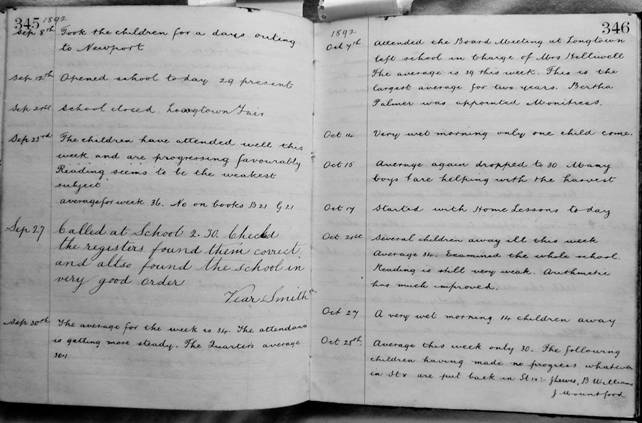 345 1892
Sep 8th Took the children for a days outing
to Newport
Sep 12th Opened school today 29 present
Sep 20th School closed. Longtown Fair
Sep 23rd The children have attended well this
week and are progressing favourably
Reading seems to be the weakest
subject
average for week 36. No on books B21 G21
Sep 27 Called at School 2.30. Checked
the registers found them correct
and also found the school in
very good order
Smith
Sep 30th The average for the week is 34. The attendance
is getting more steady. The Quarters average
346
1892
Oct 7th Attended the Board Meeting at Longtown
left school in charge of Mrs Halliwell
The average is 39 this week. This is the
largest average for two years. Bertha
Palmer was appointed Monitress.
Oct 14 Very wet morning only one child come.
Oct 15 Average again dropped to 30. Many
boys are helping with the harvest
Oct 17 Started with Home Lessons to day
Oct 21st Several children away all this week
Average 34. Examined the whole school.
Reading is still very weak. Arithmetic
has much improved.
Oct 27 A very wet morning 14 children away
Oct 28th Average this week only 30. The following
children having made no progress whatever
in St are put back in St J Lewis, B Williams
J Mountford